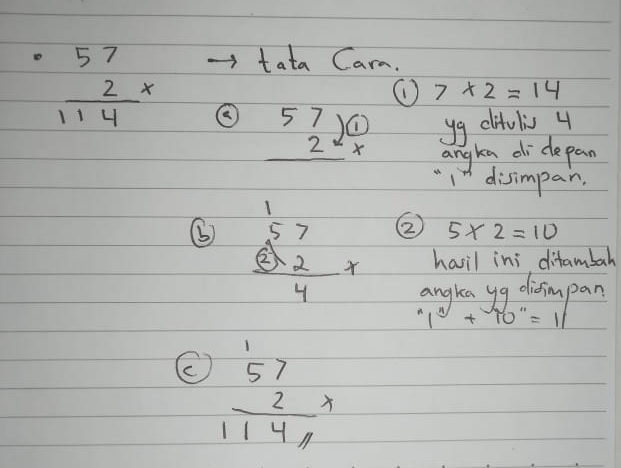 • 57
2 x
114
→ tata Cara.
(a) 57
2 x
(1)
(1) 7 x 2 = 14
yg ditulis 4
angka di depan
"1" disimpan.
(b) 1
57
(2) 2 x
4
(2) 5 x 2 = 10
hasil ini ditambah
angka yg disimpan
"1" + "10" = 11
(c) 1
57
2 x
114 //